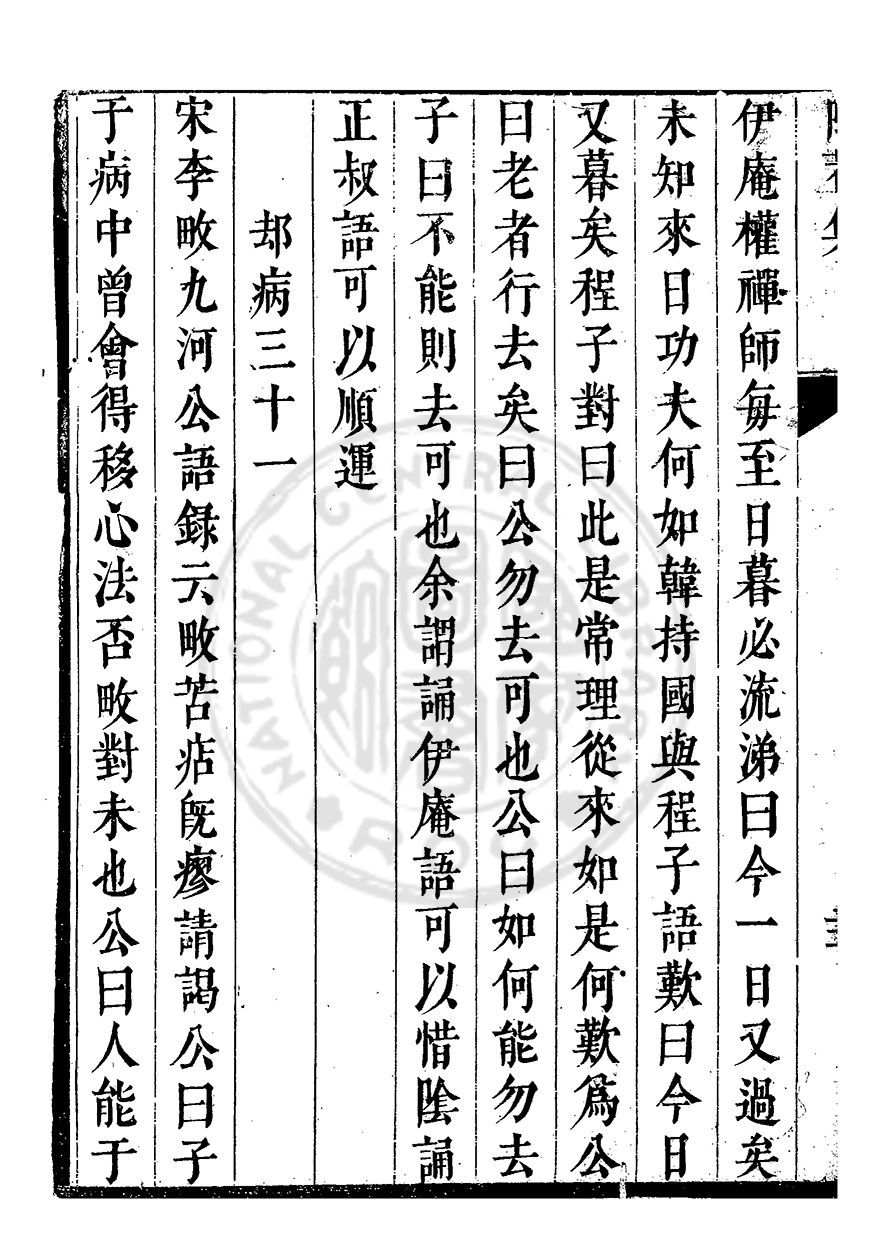 伊庵權禪師每至日暮必流涕曰今一日又過矣
未知來日功夫何如韓持國與程子語歎曰今日
又暮矣程子對曰此是常理從來如是何歎爲公
曰老者行去矣曰公勿去可也公曰如何能勿去
子曰不能則去可也余謂誦伊庵語可以惜陰誦
正叔語可以順運
却病三十一
宋李畋九河公語録云畋苦痁既瘳請謁公曰子
于病中曾會得移心法否畋對未也公曰人能于
NATIONAL CENTRAL LIBRARY